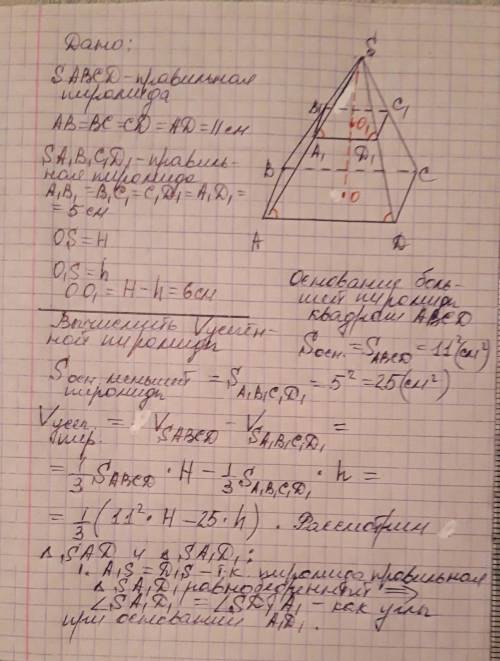 Дано:
SABCD - правильная
пирамида
AB=BC=CD=AD=11см
SA₁B₁C₁D₁ - правиль-
ная пирамида
A₁B₁=B₁C₁=C₁D₁=A₁D₁=
= 5 см
OS=H
O₁S=h
OO₁=H-h=6см
S
B₁
C₁
O₁
A₁
D₁
B
C
O
A
D
Основание боль-
шей пирамиды
квадрат ABCD
Sосн.=S ABCD=11²(см²)
Вычислить Vусечен-
ной пирамиды
Sосн. меньшей = S A₁B₁C₁D₁ = 5² = 25(см²)
пирамиды
Vусеч. = V SABCD - V SA₁B₁C₁D₁ =
пир.
= 1/3 S ABCD · H - 1/3 S A₁B₁C₁D₁ · h =
= 1/3 (11² · H - 25 · h). Рассмотрим
△SAD и △SA₁D₁:
1. A₁S=D₁S - т.к. пирамида правильная
△SA₁D₁ равнобедренный ⇒
∠SA₁D₁ = ∠SD₁A₁ - как углы
при основании A₁D₁.